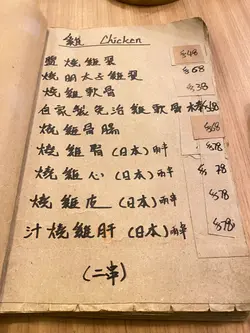 雞 Chicken
鹽燒雞翼 $48
燒明太子雞翼 $68
燒雞軟骨 $38
自家製免治雞軟骨棒 $68
燒雞唇腸 $68
燒雞腎（日本）兩串 $78
燒雞心（日本）兩串 $78
燒雞皮（日本）兩串 $78
汁燒雞肝（日本）兩串 $78
（二串）